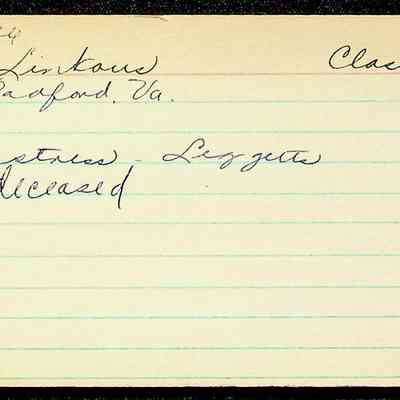 Linkous Clas
Radford, Va.
stress - Leggetts
deceased